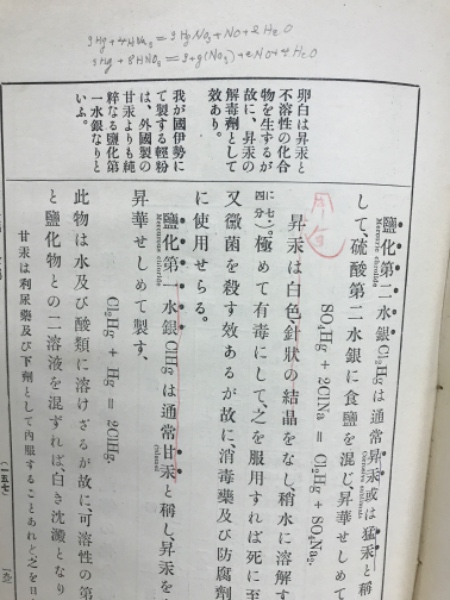 3Hg+4HNO3=3HgNO3+NO+2H2O
3Hg+8HNO3=3Hg(NO3)2+2NO+4H2O
卵白は昇汞と
不溶性の化合
物を生ずるが
故に、昇汞の
解毒劑として
效あり。
我が國伊勢に
て製する輕粉
は、外國製の
甘汞よりも純
粹なる鹽化第
一水銀なりと
いふ。
鹽化第二水銀Cl2Hgは通常昇汞或は猛汞と稱
Mercuric chloride
Corrosive sublimate
して、硫酸第二水銀に食鹽を混じ、昇華せしめて
SO4Hg + 2ClNa = Cl2Hg + SO4Na2.
昇汞は白色針狀の結晶をなし、稍水に溶解す
に七・
四分
)極めて有毒にして、之を服用すれば死に至
又黴菌を殺す效あるが故に、消毒藥及び防腐劑
に使用せらる。
鹽化第一水銀ClHgは通常甘汞と稱し、昇汞を
Mercurous chloride
calomel
昇華せしめて製す、
Cl2Hg + Hg = 2ClHg.
此物は水及び酸類に溶けざるが故に、可溶性の第
と鹽化物との二溶液を混ずれば、白き沈澱となり
甘汞は利尿藥及び下劑として內服することあれど、之を日
(一五七)